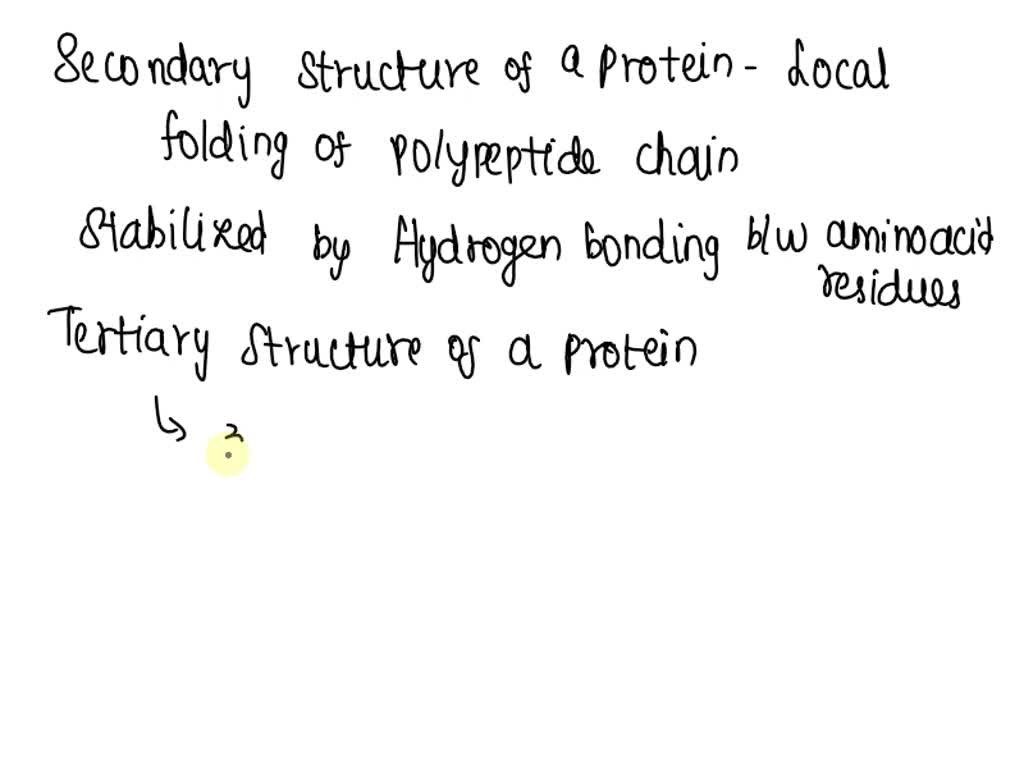 Secondary structure of a protein - Local
folding of polypeptide chain
stabilized by Hydrogen bonding b/w aminoacid
residues
Tertiary structure of a protein
↳